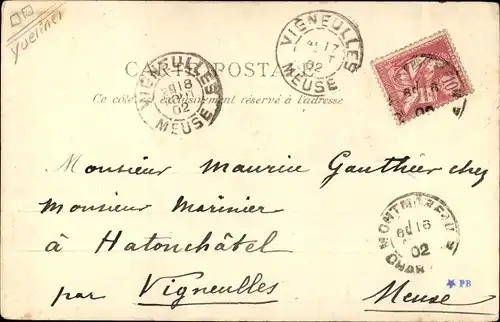 VIGNEULLES
17
02
MEUSE
VIGNEULLES
18
02
MEUSE
CARTE POSTALE
Ce côté est exclusivement réservé à l'adresse
10
Monsieur Maurice Gauthier chez
Monsieur Marinier
à Hatonchâtel
par Vigneulles
Meuse
16
02
PB